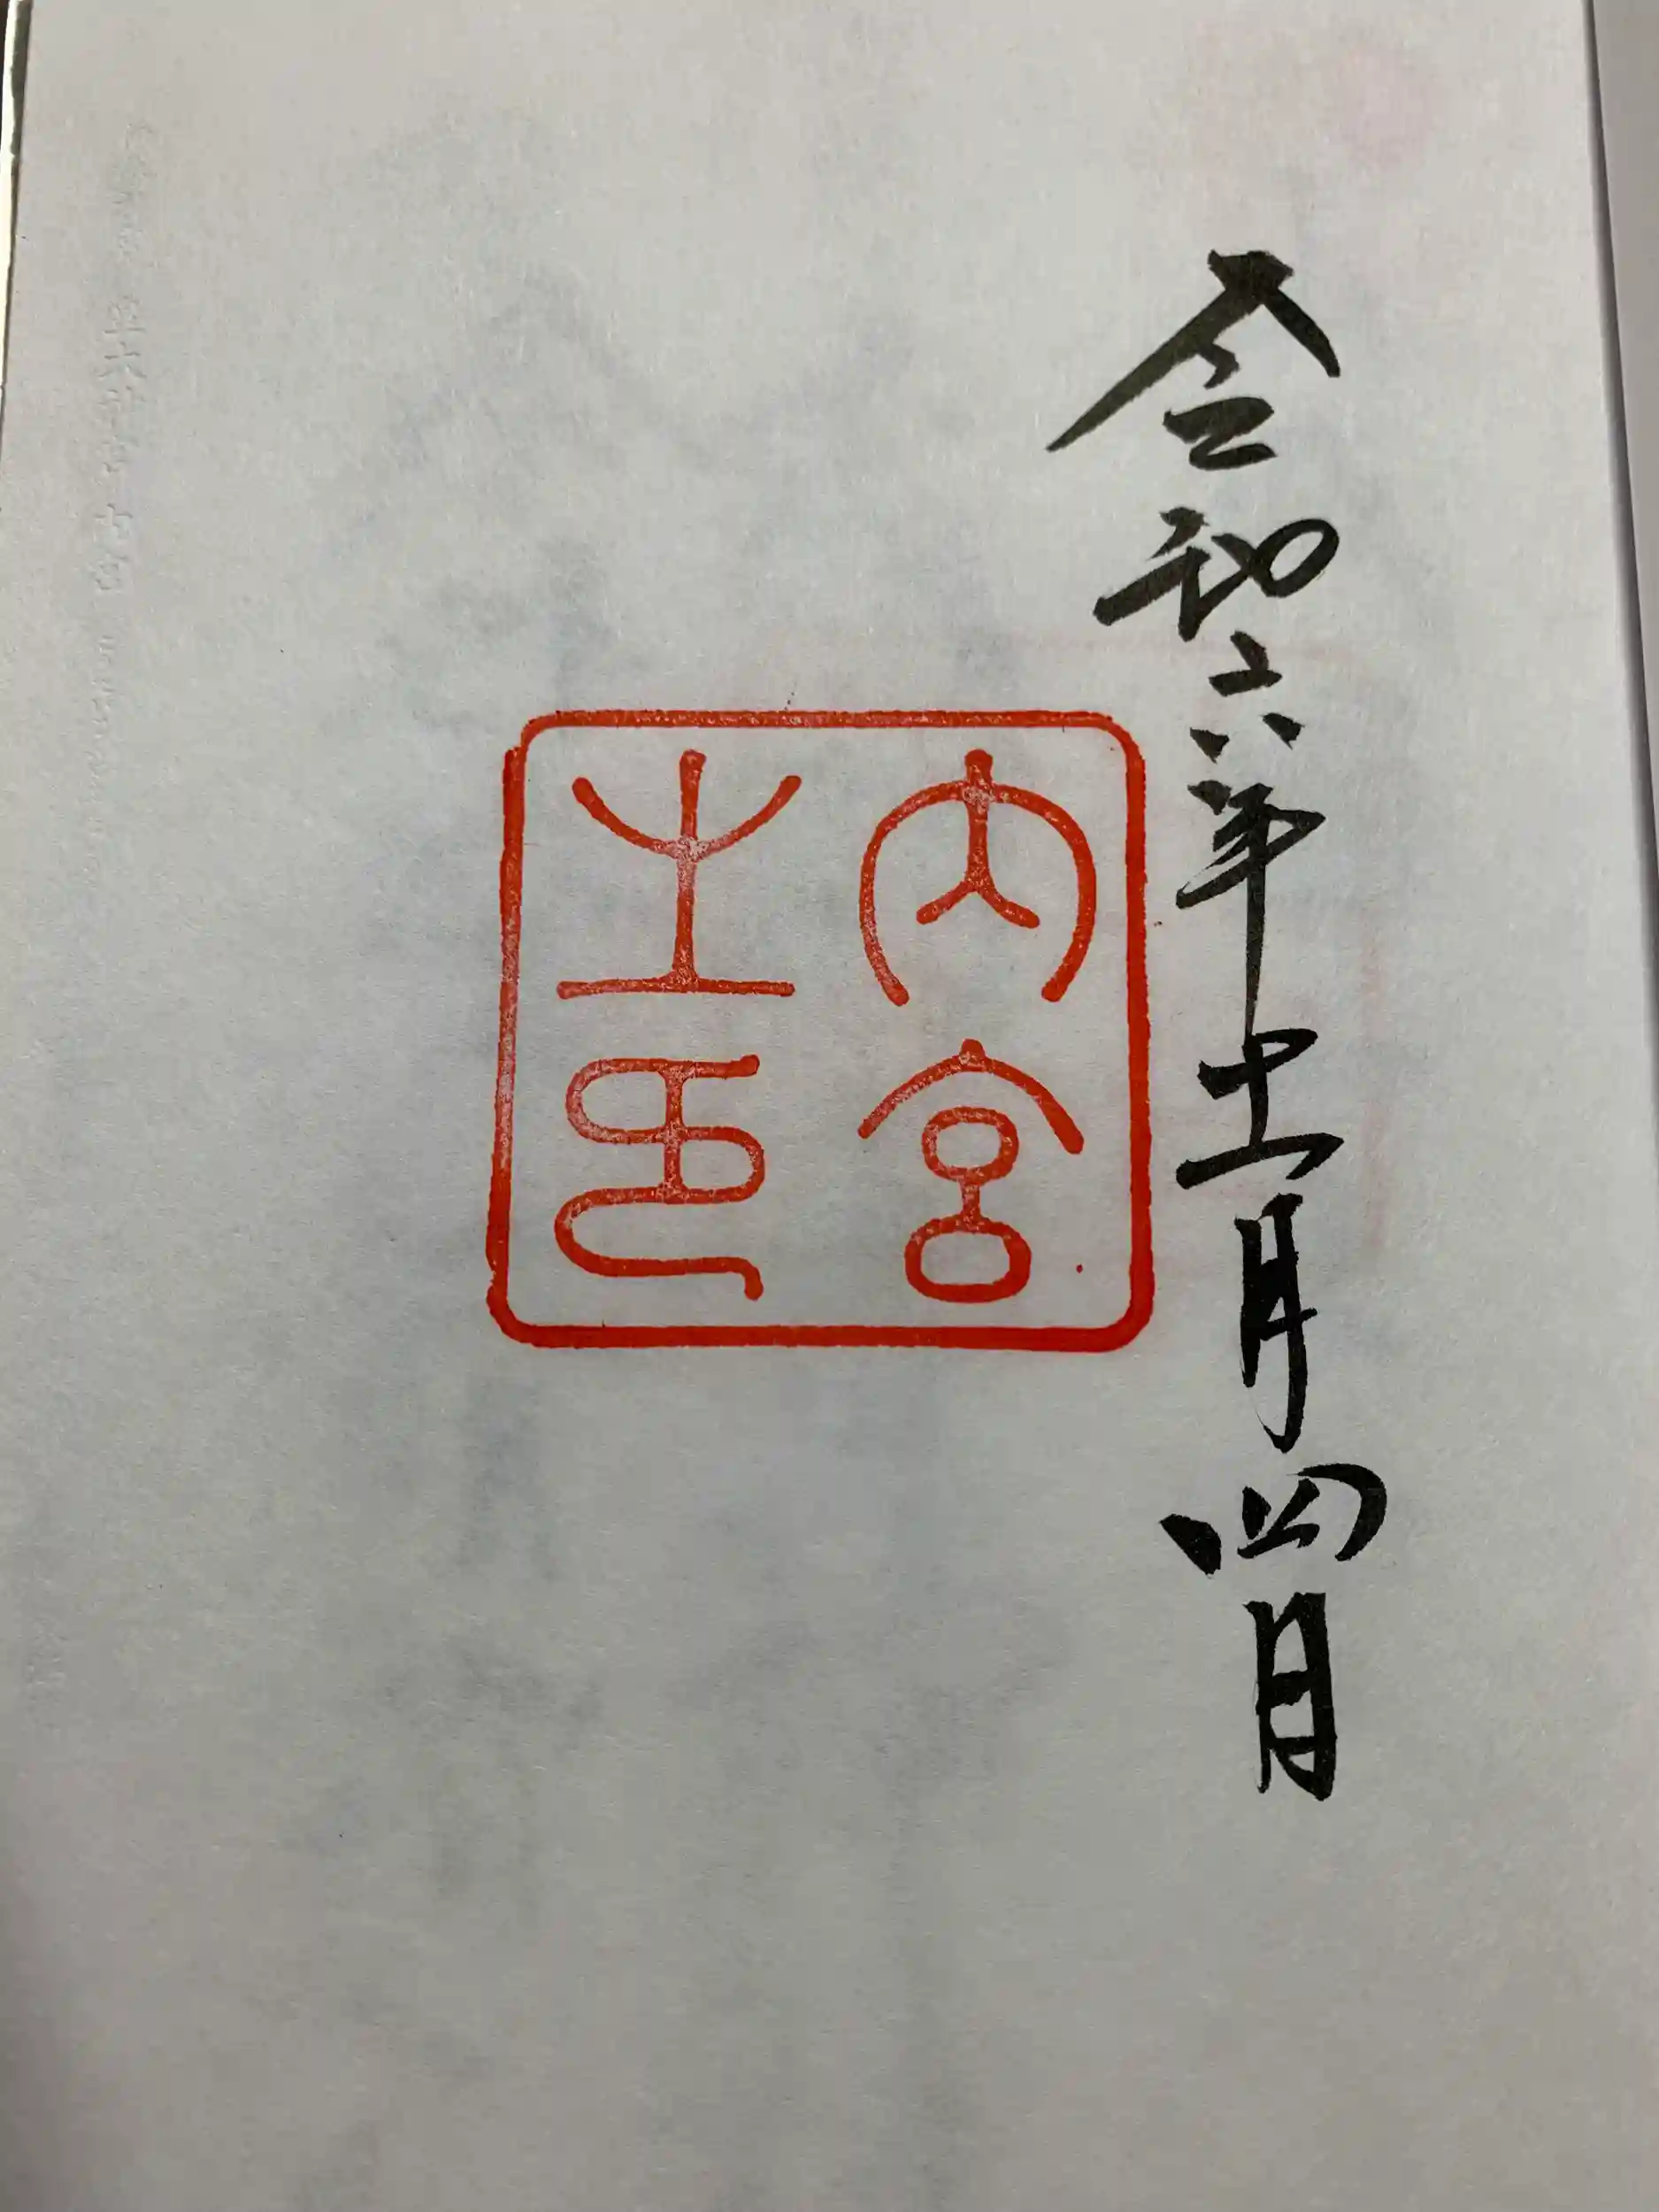 令和六年十一月四日
内宮
之印